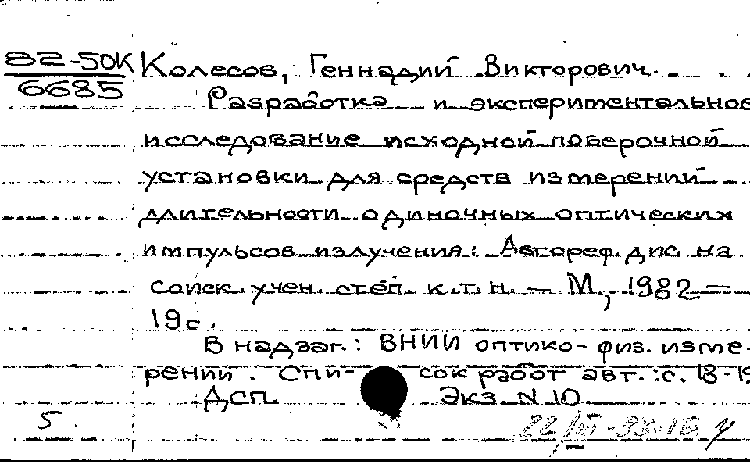 82-50К Колесов, Геннадий Викторович.
6685
Разработка и экспериментальное
исследование исходной поверочной
установки для средств измерений
длительности одиночных оптических
импульсов излучения: Автореф. дис. на
соиск. учен. степ. к.т.н. — М., 1982 —
19с.
В надзаг.: ВНИИ оптико-физ. изме-
рений. Спи- сок работ авт.: с. 18-19
Дсп. Экз. N 10
5.